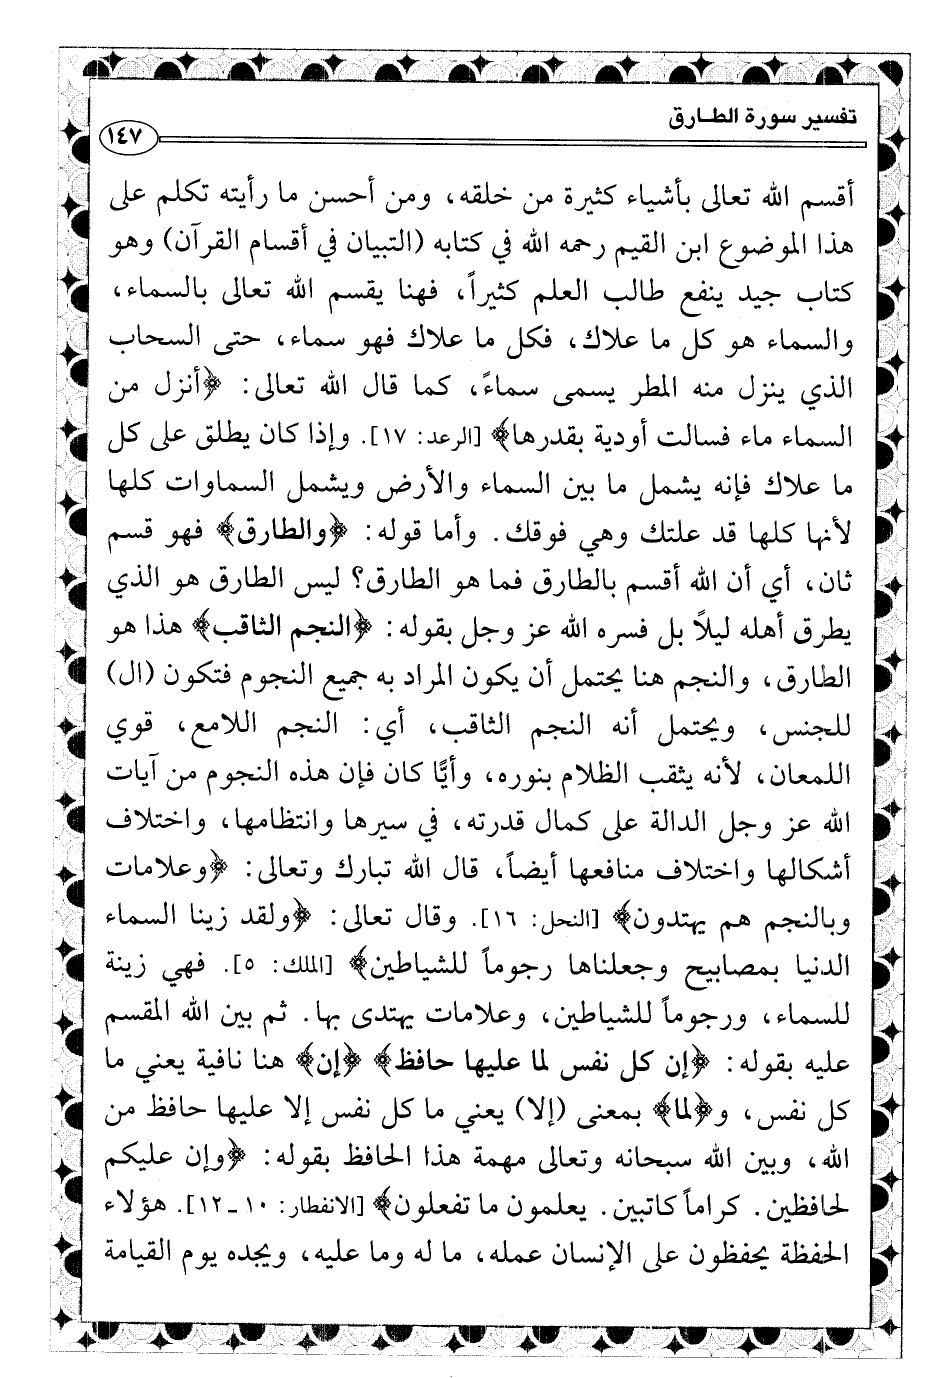 تفسير سورة الطارق
١٤٧
أقسم الله تعالى بأشياء كثيرة من خلقه، ومن أحسن ما رأيته تكلم على
هذا الموضوع ابن القيم رحمه الله في كتابه (التبيان في أقسام القرآن) وهو
كتاب جيد ينفع طالب العلم كثيراً، فهنا يقسم الله تعالى بالسماء،
والسماء هو كل ما علاك، فكل ما علاك فهو سماء، حتى السحاب
الذي ينزل منه المطر يسمى سماءً، كما قال الله تعالى: ﴿أنزل من
السماء ماء فسالت أودية بقدرها﴾ [الرعد: ١٧]. وإذا كان يطلق على كل
ما علاك فإنه يشمل ما بين السماء والأرض ويشمل السماوات كلها
لأنها كلها قد علتك وهي فوقك. وأما قوله: ﴿والطارق﴾ فهو قسم
ثان، أي أن الله أقسم بالطارق فما هو الطارق؟ ليس الطارق هو الذي
يطرق أهله ليلاً بل فسره الله عز وجل بقوله: ﴿النجم الثاقب﴾ هذا هو
الطارق، والنجم هنا يحتمل أن يكون المراد به جميع النجوم فتكون (ال)
للجنس، ويحتمل أنه النجم الثاقب، أي: النجم اللامع، قوي
اللمعان، لأنه يثقب الظلام بنوره، وأيًّا كان فإن هذه النجوم من آيات
الله عز وجل الدالة على كمال قدرته، في سيرها وانتظامها، واختلاف
أشكالها واختلاف منافعها أيضاً، قال الله تبارك وتعالى: ﴿وعلامات
وبالنجم هم يهتدون﴾ [النحل: ١٦]. وقال تعالى: ﴿ولقد زينا السماء
الدنيا بمصابيح وجعلناها رجوماً للشياطين﴾ [الملك: ٥]. فهي زينة
للسماء، ورجوماً للشياطين، وعلامات يهتدى بها. ثم بين الله المقسم
عليه بقوله: ﴿إن كل نفس لما عليها حافظ﴾ ﴿إن﴾ هنا نافية يعني ما
كل نفس، و﴿لما﴾ بمعنى (إلا) يعني ما كل نفس إلا عليها حافظ من
الله، وبين الله سبحانه وتعالى مهمة هذا الحافظ بقوله: ﴿وإن عليكم
لحافظين. كراماً كاتبين. يعلمون ما تفعلون﴾ [الانفطار: ١٠ـ١٢]. هؤلاء
الحفظة يحفظون على الإنسان عمله، ما له وما عليه، ويجده يوم القيامة